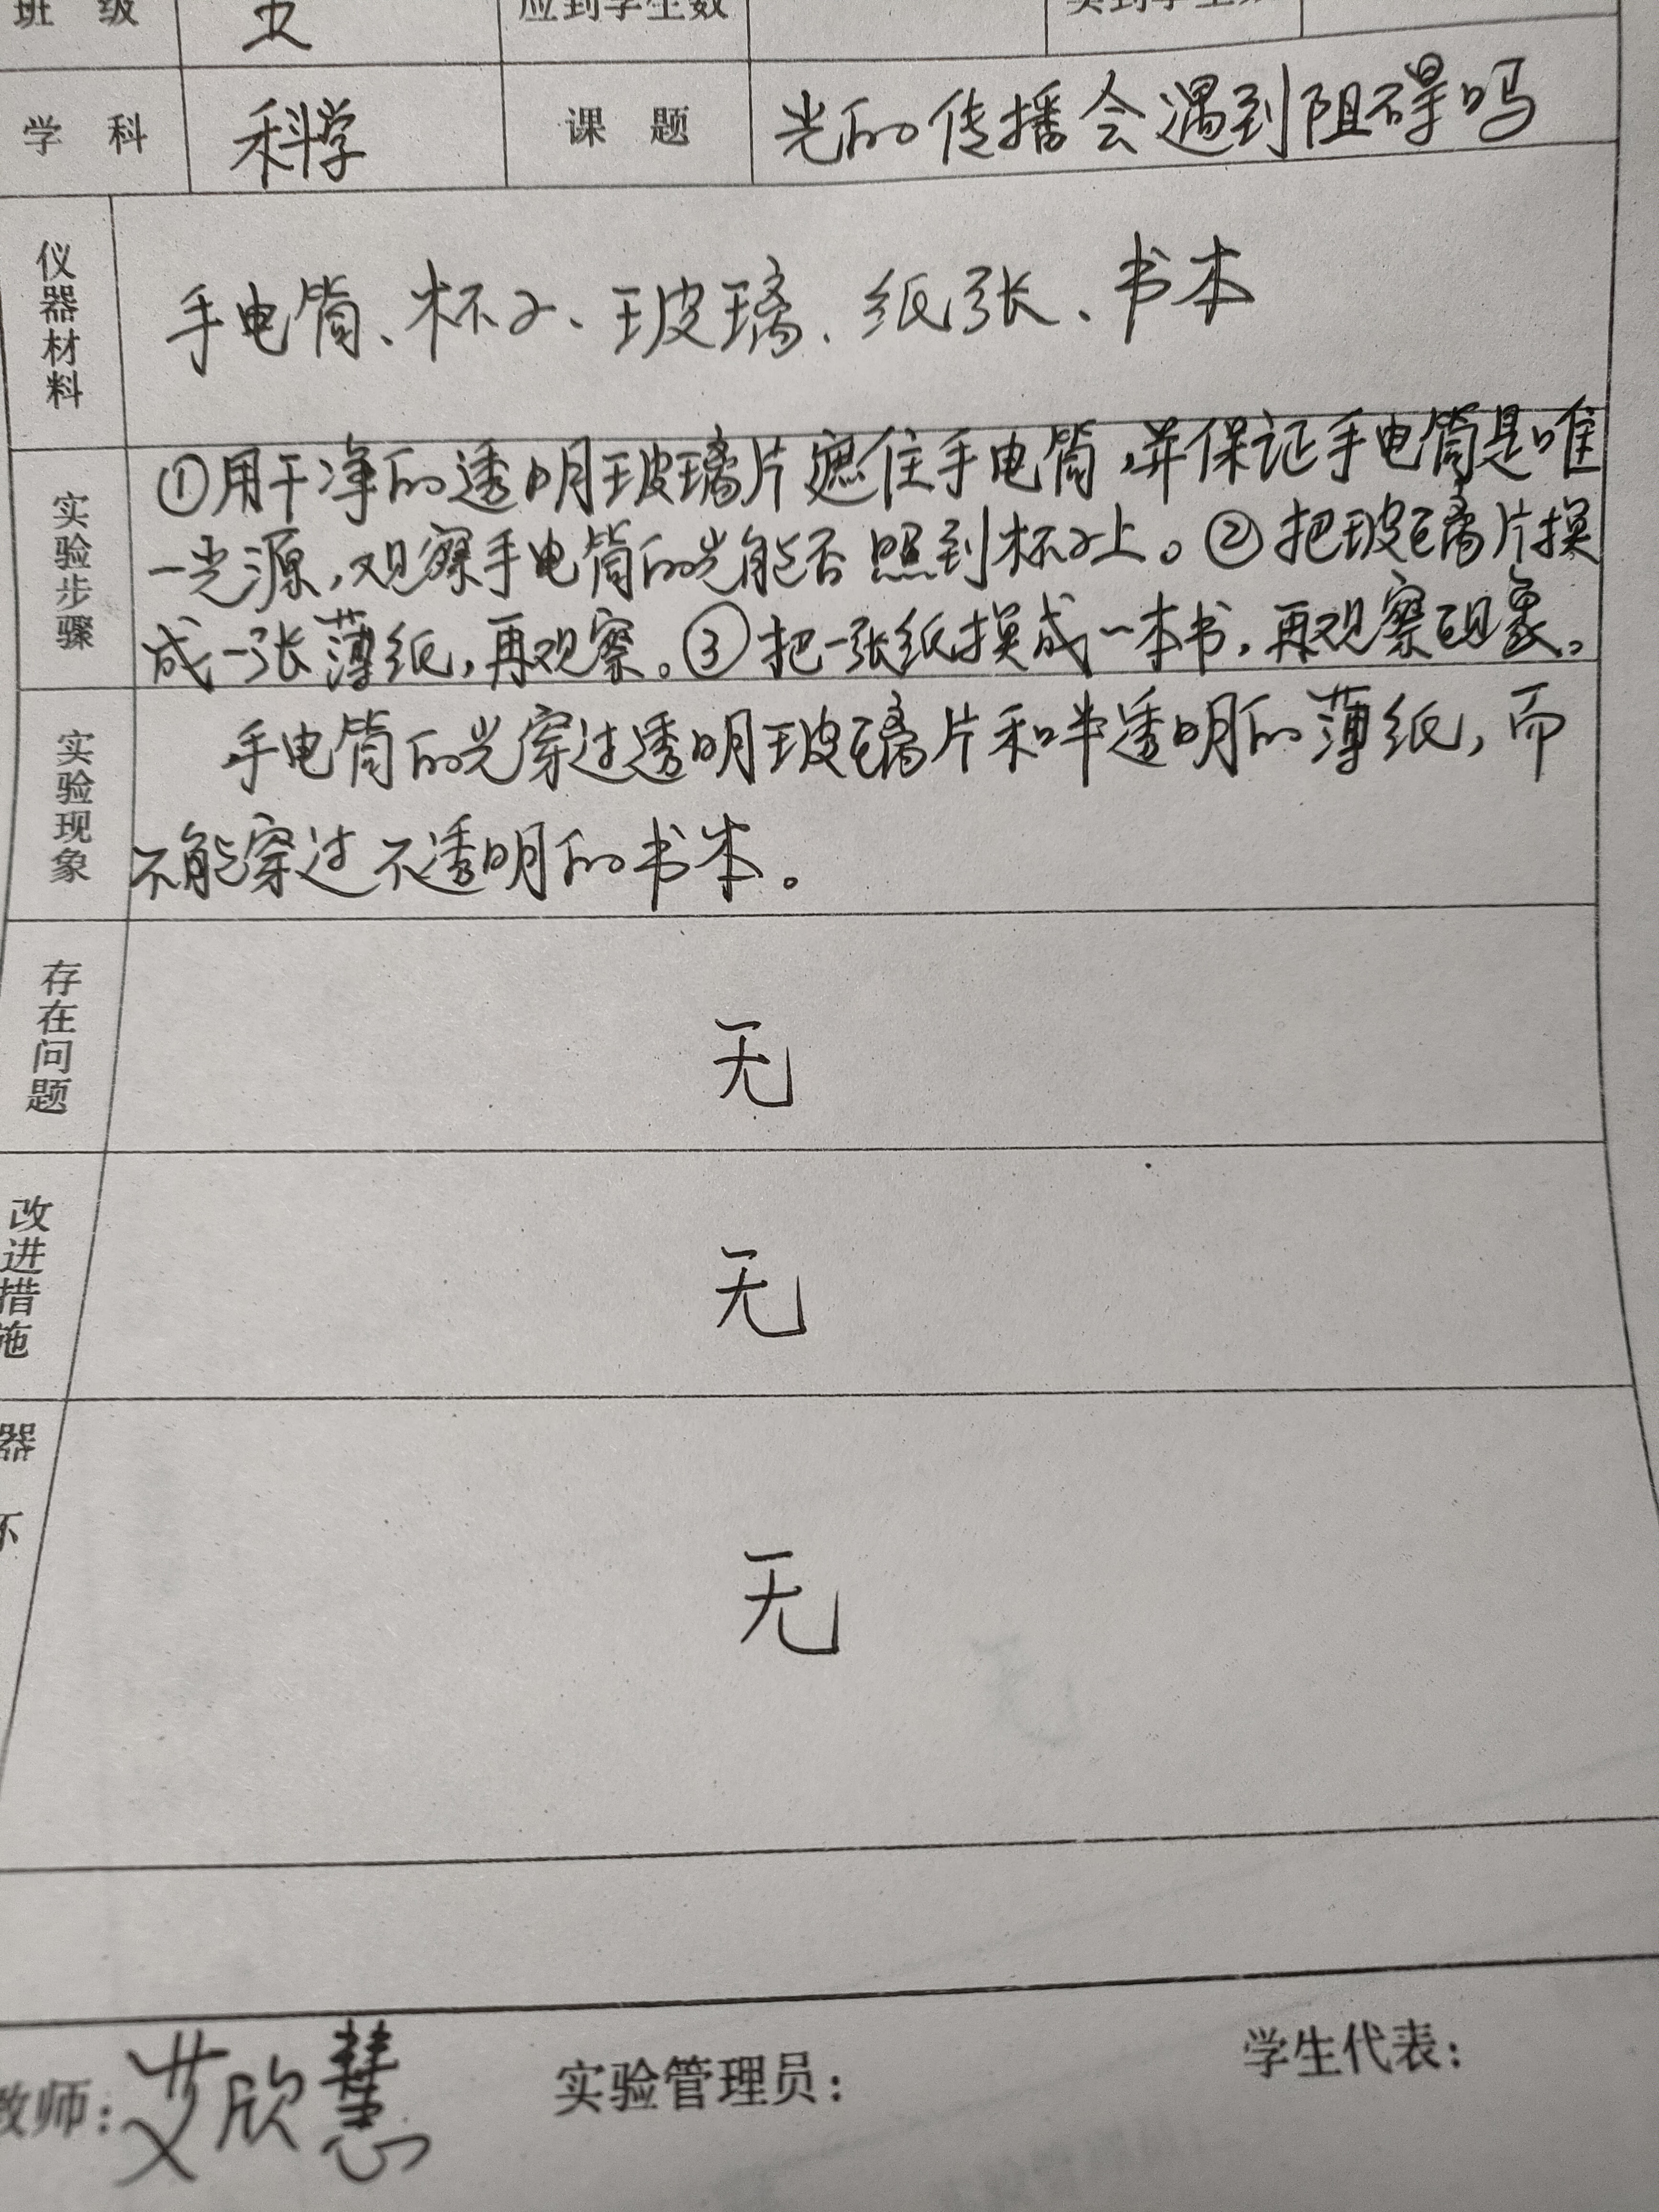 班 级 五 应到学生数 实到学生数
学 科 科学 课 题 光的传播会遇到阻碍吗
仪器材料 手电筒、杯子、玻璃、纸张、书本
实验步骤
①用干净的透明玻璃片遮住手电筒,并保证手电筒是唯
一光源,观察手电筒的光能否照到杯子上。②把玻璃片换
成一张薄纸,再观察。③把一张纸换成一本书,再观察现象。
实验现象
手电筒的光穿过透明玻璃片和半透明的薄纸,而
不能穿过不透明的书本。
存在问题 无
改进措施 无
器
不
无
教师:艾欣慧 实验管理员: 学生代表: